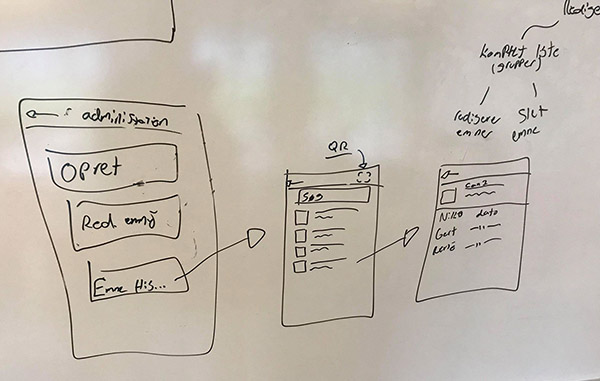 Komplet liste
(grupper)
redigerer
emner
Slet
emne
administration
Opret
Red. emne
Emne His...
QR
Søg
Niko dato
Gert -"-
René -"-